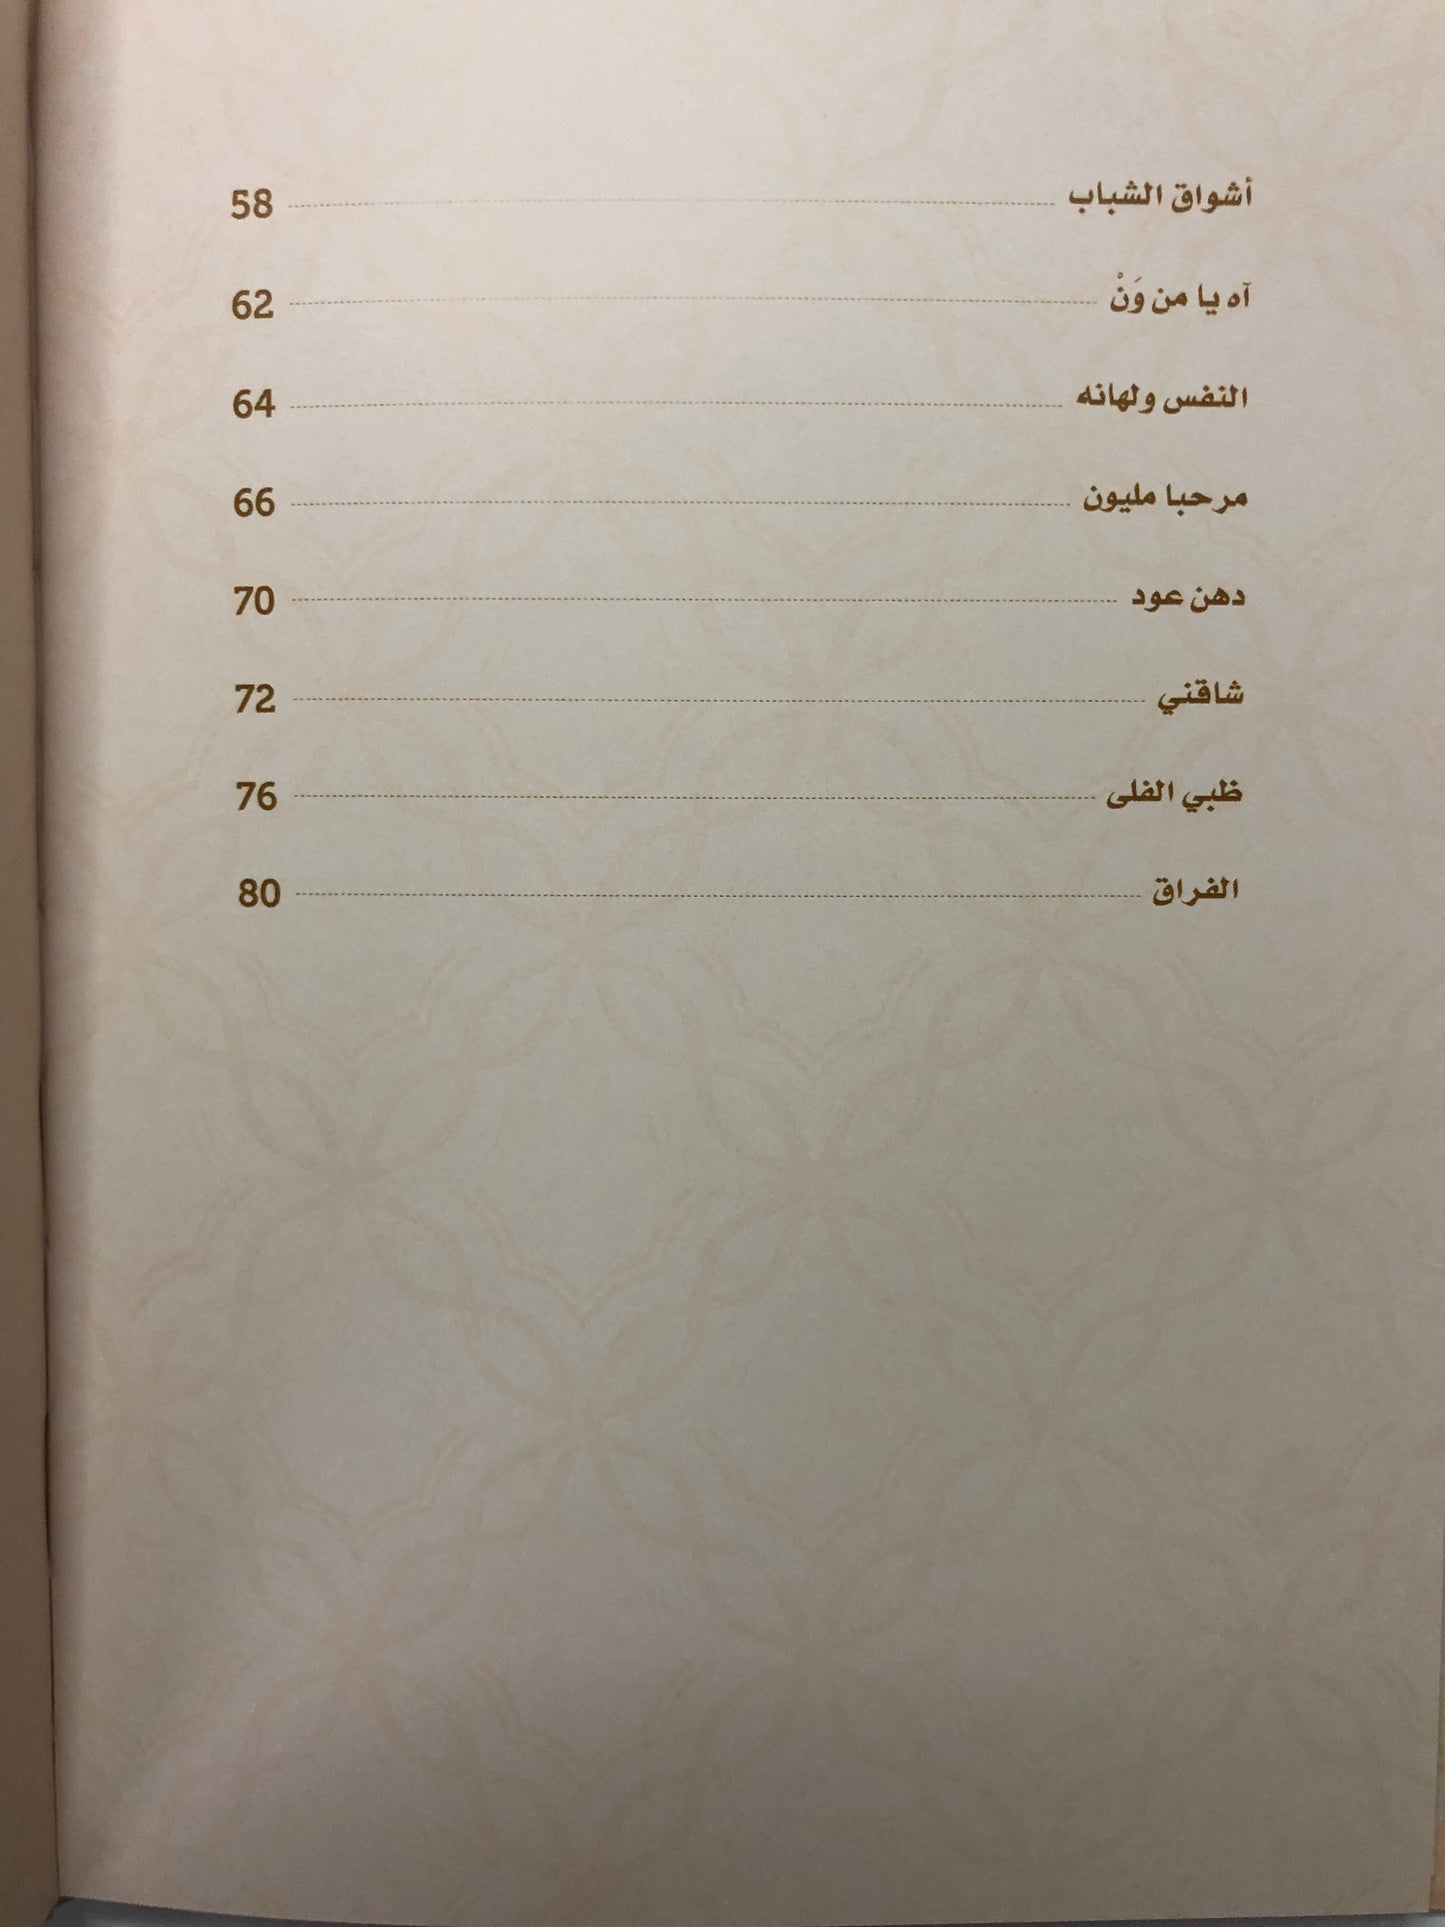 أشواق الشباب 58
آه يا من وَنْ 62
النفس ولهانه 64
مرحبا مليون 66
دهن عود 70
شاقني 72
ظبي الفلى 76
الفراق 80